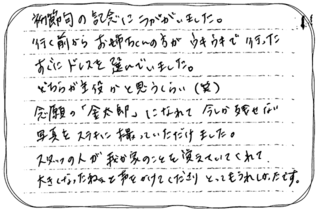 初節句の記念にうかがいました。
行く前からお姉ちゃんの方がウキウキで行った
すぐにドレスを選んでいました。
どちらが主役かと思うくらい(笑)
念願の「金太郎」になれて今しか残せない
写真をステキに撮っていただけました。
スタッフの人が我が家のことを覚えていてくれて
大きくなったねぇと声をかけてくださり とってもうれしかったです。